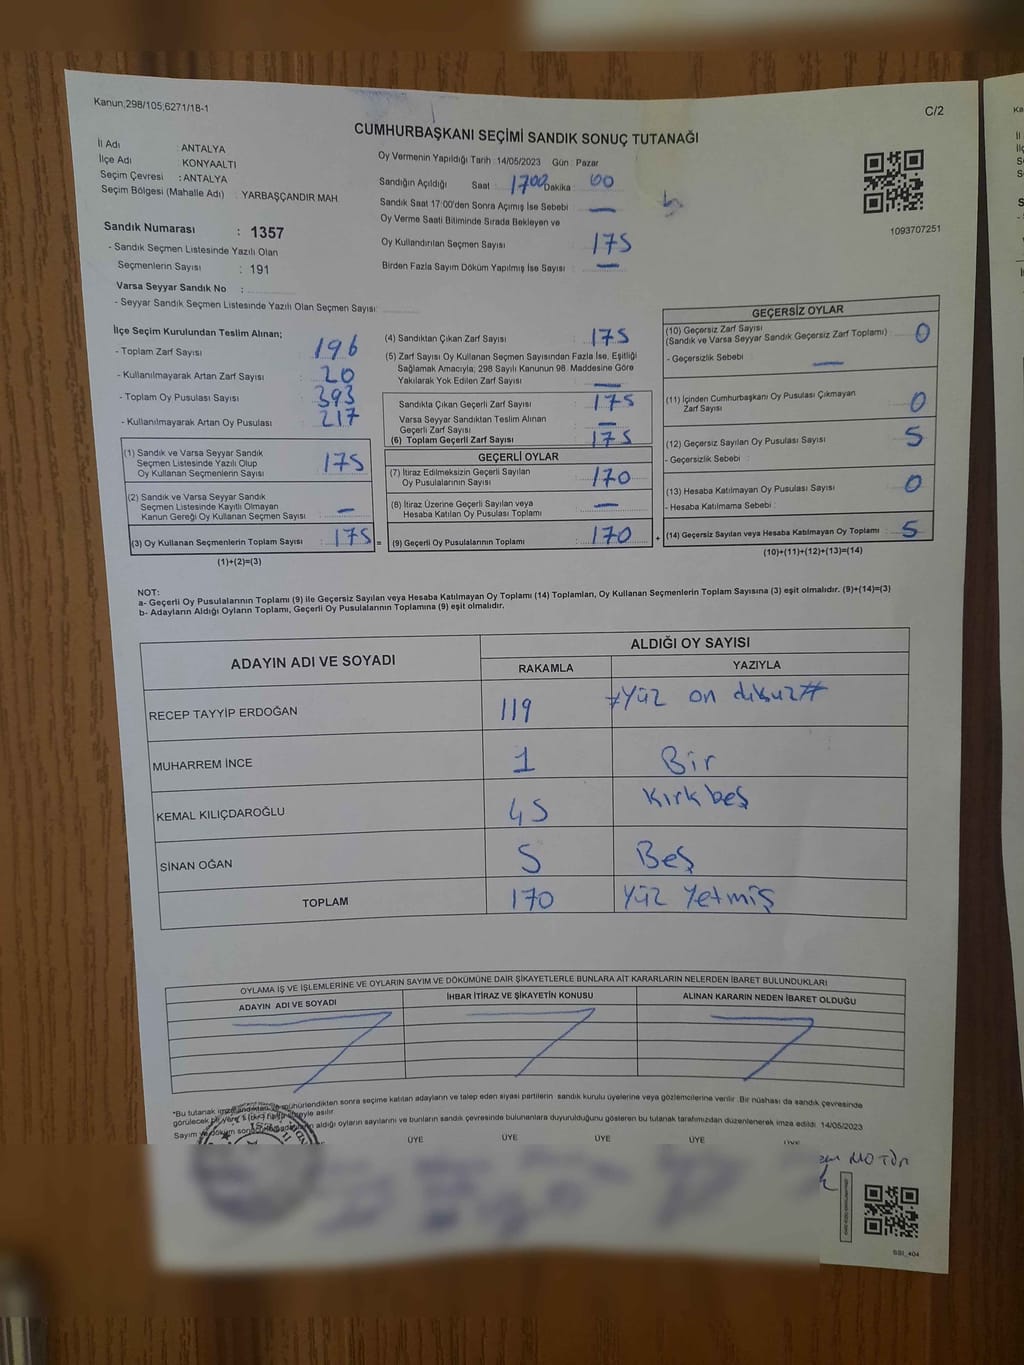 Kanun,298/105,6271/18-1
C/2
CUMHURBAŞKANI SEÇİMİ SANDIK SONUÇ TUTANAĞI
İl Adı : ANTALYA
İlçe Adı : KONYAALTI
Seçim Çevresi : ANTALYA
Seçim Bölgesi (Mahalle Adı) : YARBAŞÇANDIR MAH
Sandık Numarası : 1357
- Sandık Seçmen Listesinde Yazılı Olan
Seçmenlerin Sayısı : 191
Varsa Seyyar Sandık No :
- Seyyar Sandık Seçmen Listesinde Yazılı Olan Seçmen Sayısı:
Oy Vermenin Yapıldığı Tarih :14/05/2023 Gün : Pazar
Sandığın Açıldığı Saat : 1700 Dakika : 00
Sandık Saat 17:00'den Sonra Açımış İse Sebebi —
Oy Verme Saati Bitiminde Sırada Bekleyen ve
Oy Kullandırılan Seçmen Sayısı : 175
Birden Fazla Sayım Döküm Yapılmış İse Sayısı : —
1093707251
İlçe Seçim Kurulundan Teslim Alınan;
- Toplam Zarf Sayısı : 196
- Kullanılmayarak Artan Zarf Sayısı : 20
- Toplam Oy Pusulası Sayısı : 393
- Kullanılmayarak Artan Oy Pusulası : 217
(1) Sandık ve Varsa Seyyar Sandık
Seçmen Listesinde Yazılı Olup
Oy Kullanan Seçmenlerin Sayısı : 175
(2) Sandık ve Varsa Seyyar Sandık
Seçmen Listesinde Kayıtlı Olmayan
Kanun Gereği Oy Kullanan Seçmen Sayısı : —
(3) Oy Kullanan Seçmenlerin Toplam Sayısı : 175 =
(1)+(2)=(3)
(4) Sandıktan Çıkan Zarf Sayısı : 175
(5) Zarf Sayısı Oy Kullanan Seçmen Sayısından Fazla İse, Eşitliği
Sağlamak Amacıyla; 298 Sayılı Kanunun 98. Maddesine Göre
Yakılarak Yok Edilen Zarf Sayısı : —
Sandıkta Çıkan Geçerli Zarf Sayısı : 175
Varsa Seyyar Sandıktan Teslim Alınan
Geçerli Zarf Sayısı : —
(6) Toplam Geçerli Zarf Sayısı : 175
GEÇERLİ OYLAR
(7) İtiraz Edilmeksizin Geçerli Sayılan
Oy Pusulalarının Sayısı : 170
(8) İtiraz Üzerine Geçerli Sayılan veya
Hesaba Katılan Oy Pusulası Toplamı : —
(9) Geçerli Oy Pusulalarının Toplamı : 170 +
GEÇERSİZ OYLAR
(10) Geçersiz Zarf Sayısı
(Sandık ve Varsa Seyyar Sandık Geçersiz Zarf Toplamı) : 0
- Geçersizlik Sebebi : —
(11) İçinden Cumhurbaşkanı Oy Pusulası Çıkmayan
Zarf Sayısı : 0
(12) Geçersiz Sayılan Oy Pusulası Sayısı : 5
- Geçersizlik Sebebi :
(13) Hesaba Katılmayan Oy Pusulası Sayısı : 0
- Hesaba Katılmama Sebebi :
(14) Geçersiz Sayılan veya Hesaba Katılmayan Oy Toplamı : 5
(10)+(11)+(12)+(13)=(14)
NOT:
a- Geçerli Oy Pusulalarının Toplamı (9) ile Geçersiz Sayılan veya Hesaba Katılmayan Oy Toplamı (14) Toplamları, Oy Kullanan Seçmenlerin Toplam Sayısına (3) eşit olmalıdır. (9)+(14)=(3)
b- Adayların Aldığı Oyların Toplamı, Geçerli Oy Pusulalarının Toplamına (9) eşit olmalıdır.
ADAYIN ADI VE SOYADI ALDIĞI OY SAYISI
RAKAMLA YAZIYLA
RECEP TAYYİP ERDOĞAN 119 #Yüz on dokuz#
MUHARREM İNCE 1 Bir
KEMAL KILIÇDAROĞLU 45 Kırkbeş
SİNAN OĞAN 5 Beş
TOPLAM 170 Yüz Yetmiş
OYLAMA İŞ VE İŞLEMLERİNE VE OYLARIN SAYIM VE DÖKÜMÜNE DAİR ŞİKAYETLERLE BUNLARA AİT KARARLARIN NELERDEN İBARET BULUNDUKLARI
ADAYIN ADI VE SOYADI İHBAR İTİRAZ VE ŞİKAYETİN KONUSU ALINAN KARARIN NEDEN İBARET OLDUĞU
*Bu tutanak imzalandıktan ve mühürlendikten sonra seçime katılan adayların ve talep eden siyasi partilerin sandık kurulu üyelerine veya gözlemcilerine verilir. Bir nüshası da sandık çevresinde
görülecek bir yere asılır.
aldığı oyların sayılarını ve bunların sandık çevresinde bulunanlara duyurulduğunu gösteren bu tutanak tarafımızdan düzenlenerek imza edildi. 14/05/2023
ÜYE ÜYE ÜYE ÜYE ÜYE
SSI_404